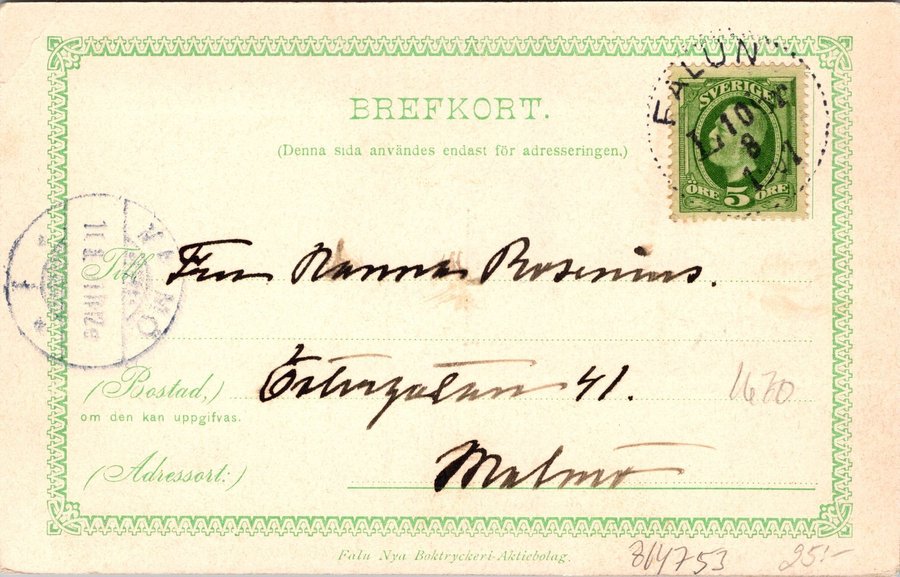 BREFKORT.
(Denna sida användes endast för adresseringen.)
FALUN
SVERIGE
10
8
ÖRE 5 ÖRE
Till Fru Hanna Rosenius.
MALMÖ
(Bostad,) Östergatan 41.
om den kan uppgifvas.
1670
(Adressort:) Malmö
Falu Nya Boktryckeri-Aktiebolag.
814753 25:-